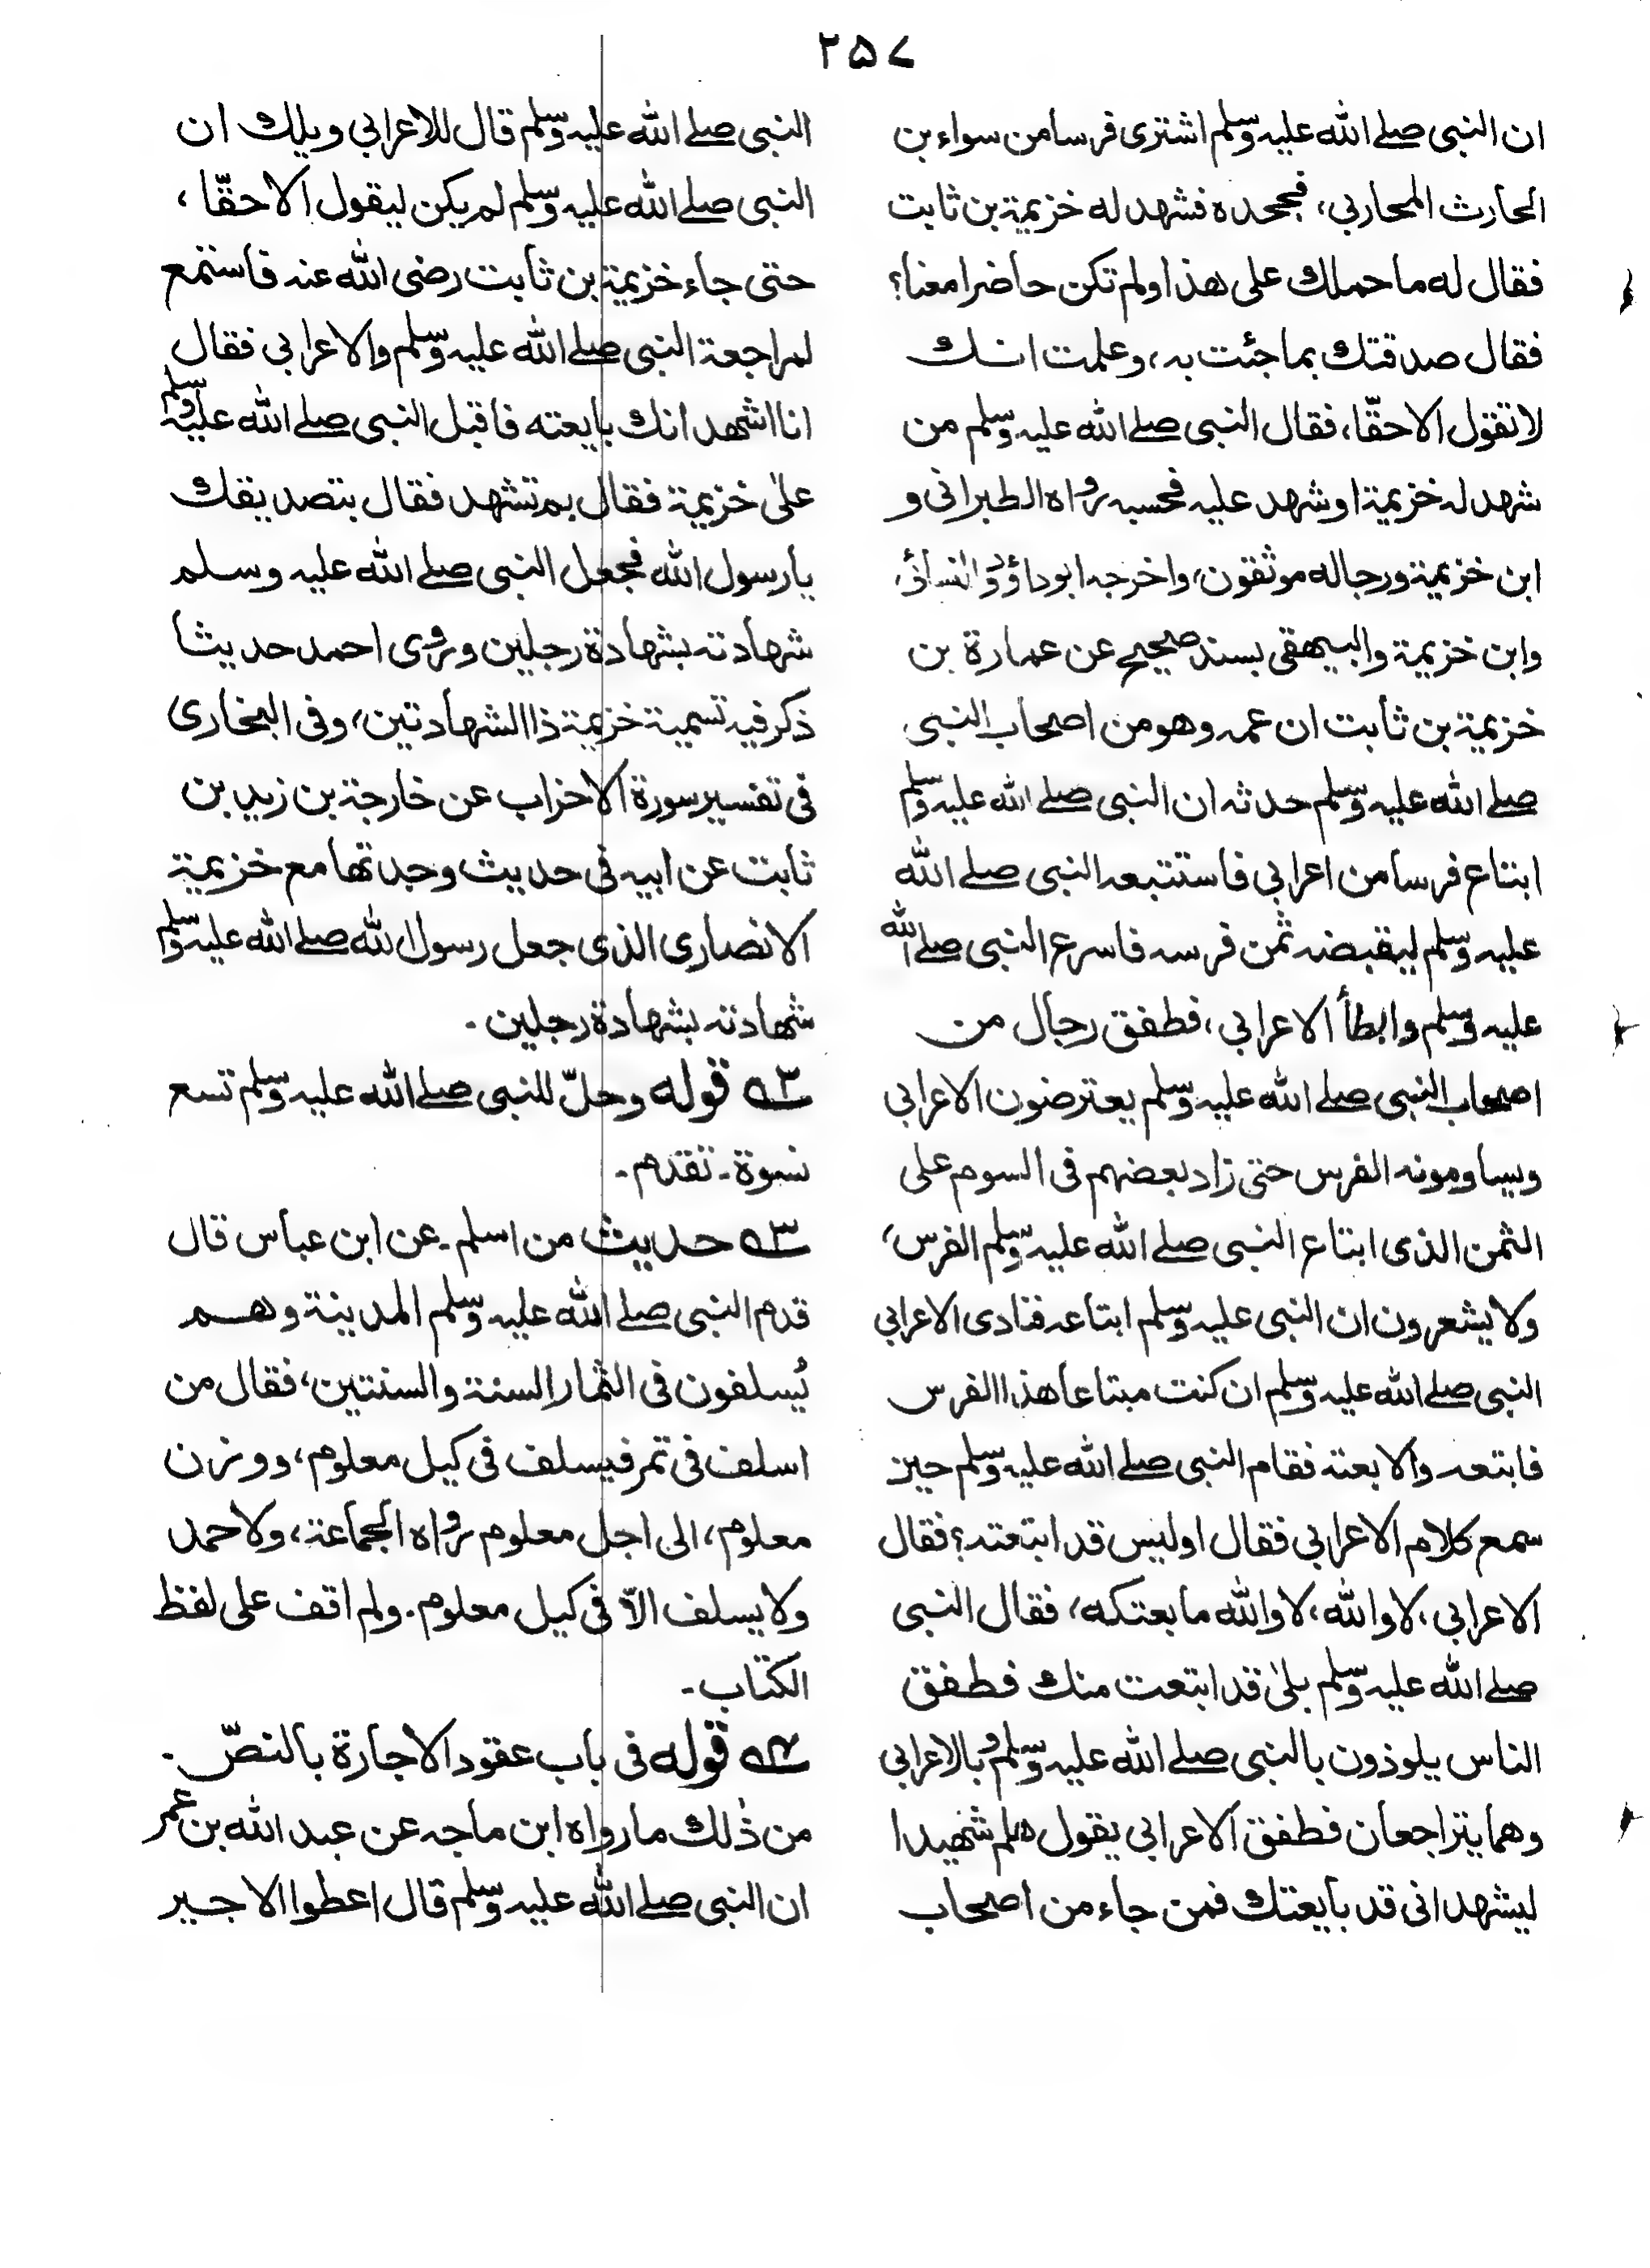 ۲۵۷
ان النبى صلے الله عليه وسلم اشترى فرسا من سواء بن
الحارث المحاربى، فجحده فشهد له خزيمة بن ثابت
فقال له ما حملك على هذا ولم تكن حاضرا معنا؟
فقال صدقتك بما جئت به، وعلمت انك
لا تقول الا حقّا، فقال النبى صلے الله عليه وسلم من
شهد له خزيمة او شهد عليه فحسبه رواه الطبرانى و
ابن خزيمة ورجاله موثقون، واخرجه ابوداؤد والنسائى
وابن خزيمة والبيهقى بسند صحيح عن عمارة بن
خزيمة بن ثابت ان عمه وهو من اصحاب النبى
صلے الله عليه وسلم حدثه ان النبى صلے الله عليه وسلم
ابتاع فرسا من اعرابى فاستتبعه النبى صلے الله
عليه وسلم ليقبضه ثمن فرسه فاسرع النبى صلے الله
عليه وسلم وابطأ الاعرابى، فطفق رجال من
اصحاب النبى صلے الله عليه وسلم يعترضون الاعرابى
ويساومونه الفرس حتى زاد بعضهم فى السوم على
الثمن الذى ابتاع النبى صلے الله عليه وسلم الفرس،
ولا يشعرون ان النبى عليه وسلم ابتاعه فنادى الاعرابى
النبى صلے الله عليه وسلم ان كنت مبتاعا هذا الفرس
فابتعه والا بعته فقام النبى صلے الله عليه وسلم حين
سمع كلام الاعرابى فقال اوليس قد ابتعته؟ فقال
الاعرابى، لا والله، لا والله ما بعتكه، فقال النبى
صلے الله عليه وسلم بلىٰ قد ابتعت منك فطفق
الناس يلوذون بالنبى صلے الله عليه وسلم وبالاعرابى
وهما يتراجعان فطفق الاعرابى يقول هلم شهيدا
ليشهد انى قد بايعتك فمن جاء من اصحاب
النبى صلے الله عليه وسلم قال للاعرابى ويلك ان
النبى صلے الله عليه وسلم لم يكن ليقول الا حقّا،
حتى جاء خزيمة بن ثابت رضى الله عنه فاستمع
لمراجعة النبى صلے الله عليه وسلم والاعرابى فقال
انا اشهد انك بايعته فاقبل النبى صلے الله عليه وسلم
علىٰ خزيمة فقال بم تشهد فقال بتصديقك
يا رسول الله فجعل النبى صلے الله عليه وسلم
شهادته بشهادة رجلين وروى احمد حديثا
ذكر فيه تسمية خزيمة ذا الشهادتين، وفى البخارى
فى تفسير سورة الاحزاب عن خارجة بن زيد بن
ثابت عن ابيه فى حديث وجدتها مع خزيمة
الانصارى الذى جعل رسول الله صلے الله عليه وسلم
شهادته بشهادة رجلين -
۵۲ قوله وحلّ للنبى صلے الله عليه وسلم تسع
نسوة - تقدم -
۵۳ حديث من اسلم - عن ابن عباس قال
قدم النبى صلے الله عليه وسلم المدينة وهم
يُسلفون فى الثمار السنة والسنتين، فقال من
اسلف فى تمر فيسلف فى كيل معلوم، ووزن
معلوم، الى اجل معلوم رواه الجماعة، ولاحمد
ولا يسلف الاّ فى كيل معلوم. ولم اقف على لفظ
الكتاب -
۵۴ قوله فى باب عقود الاجارة بالنصّ -
من ذٰلك ما رواه ابن ماجه عن عبد الله بن عمر
ان النبى صلے الله عليه وسلم قال اعطوا الاجير